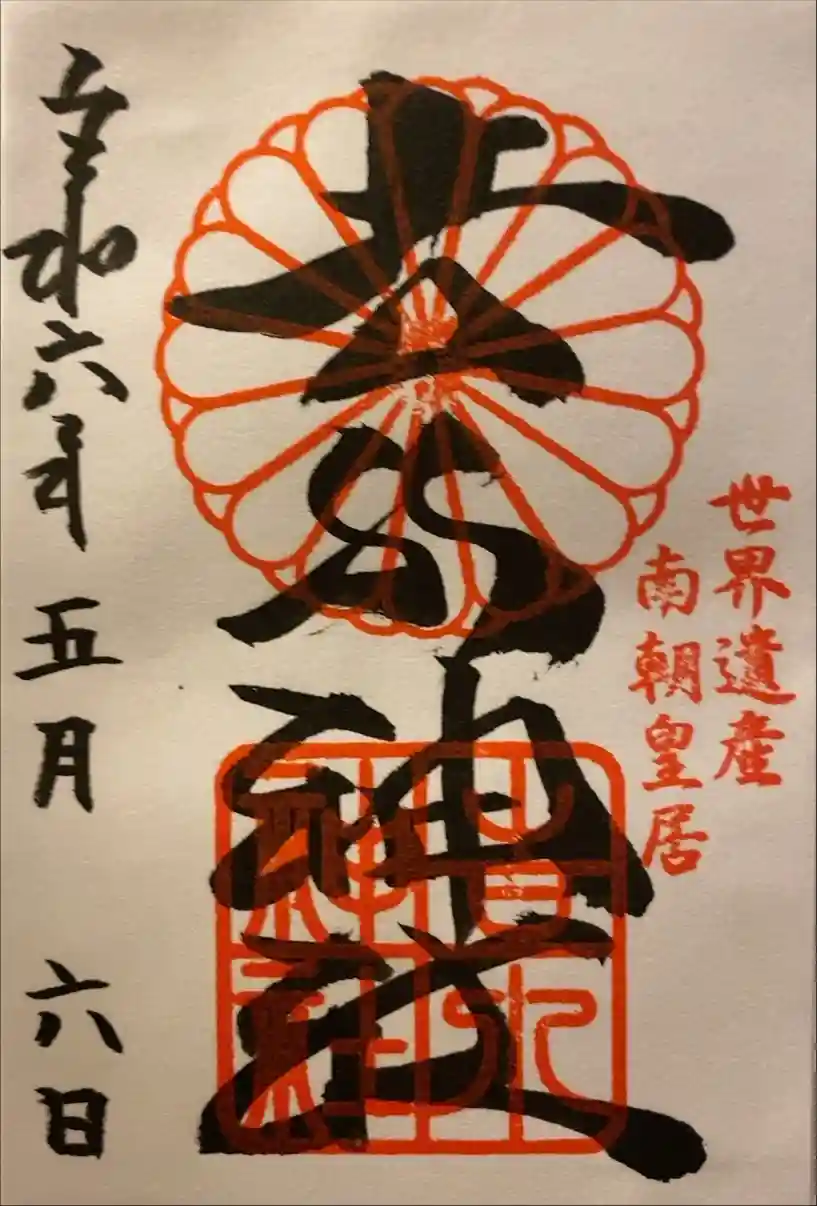 世界遺産
南朝皇居
吉水神社
吉水神社
令和六年 五月 六日